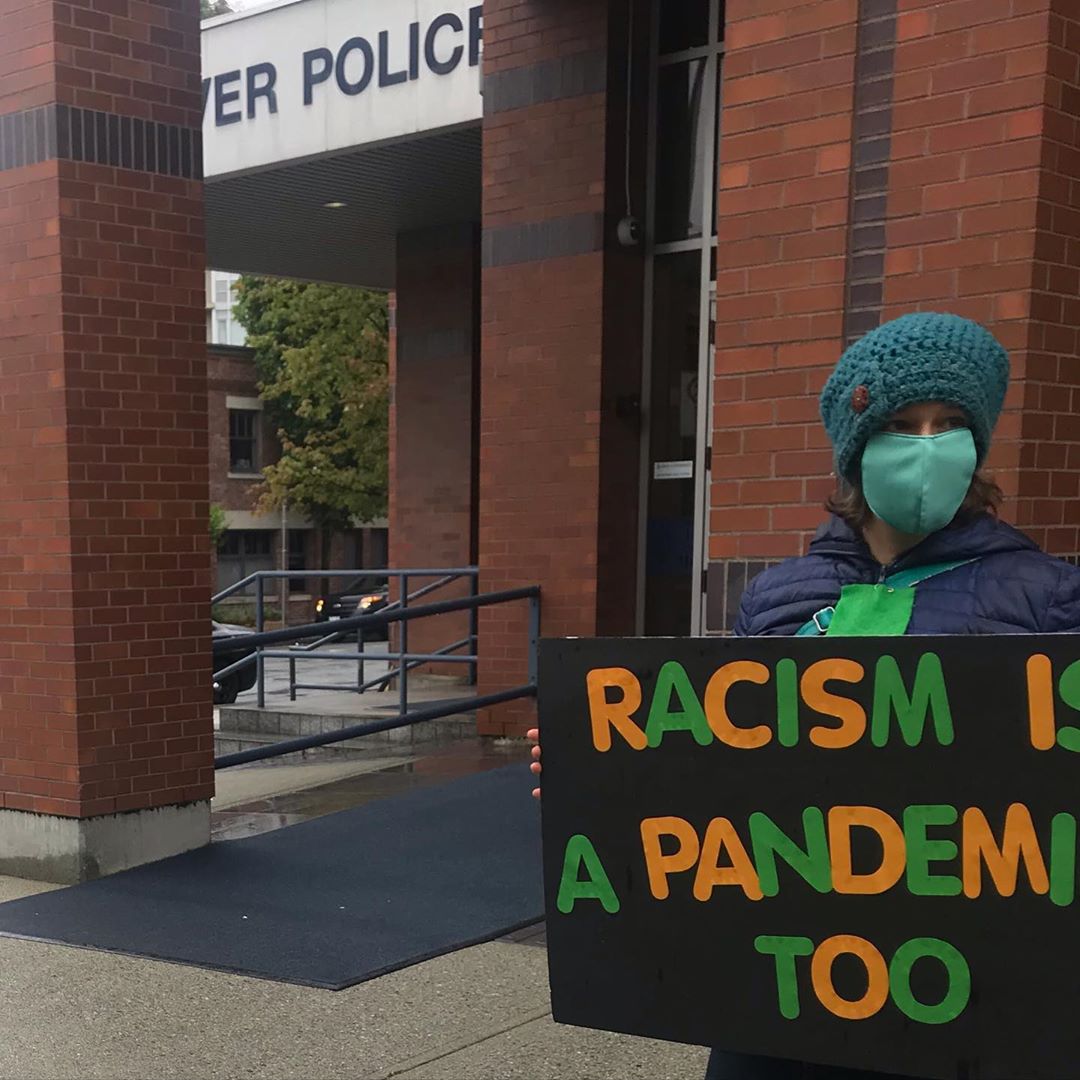 VER POLICE
RACISM IS
A PANDEMI
TOO